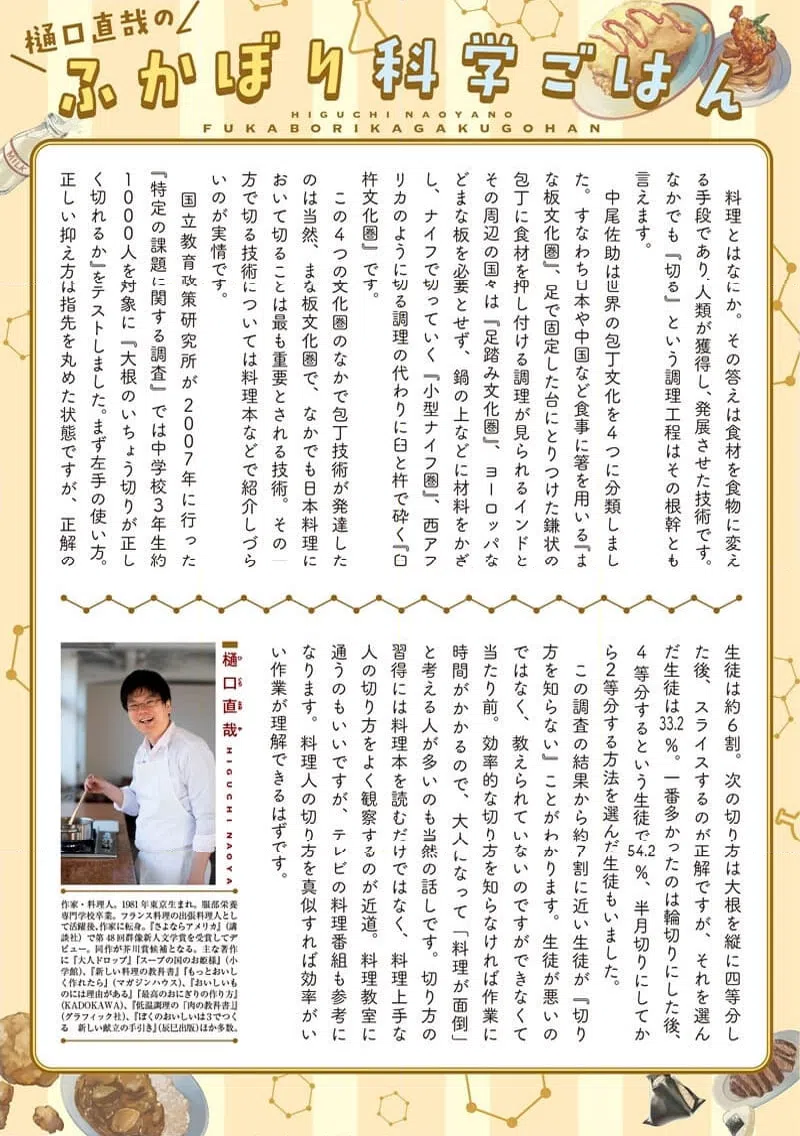 樋口直哉の
ふかぼり科学ごはん
HIGUCHI NAOYANO
FUKABORIKAGAKUGOHAN
　料理とはなにか。その答えは食材を食物に変え
る手段であり、人類が獲得し、発展させた技術です。
なかでも『切る』という調理工程はその根幹とも
言えます。
　中尾佐助は世界の包丁文化を4つに分類しまし
た。すなわち日本や中国など食事に箸を用いる『ま
な板文化圏』、足で固定した台にとりつけた鎌状の
包丁に食材を押し付ける調理が見られるインドと
その周辺の国々は『足踏み文化圏』、ヨーロッパな
どまな板を必要とせず、鍋の上などに材料をかざ
し、ナイフで切っていく『小型ナイフ圏』、西アフ
リカのように切る調理の代わりに臼と杵で砕く『臼
杵文化圏』です。
　この4つの文化圏のなかで包丁技術が発達した
のは当然、まな板文化圏で、なかでも日本料理に
おいて切ることは最も重要とされる技術。その一
方で切る技術については料理本などで紹介しづら
いのが実情です。
　国立教育政策研究所が2007年に行った
『特定の課題に関する調査』では中学校3年生約
1000人を対象に『大根のいちょう切りが正し
く切れるか』をテストしました。まず左手の使い方。
正しい抑え方は指先を丸めた状態ですが、正解の
生徒は約6割。次の切り方は大根を縦に四等分し
た後、スライスするのが正解ですが、それを選ん
だ生徒は33.2%。一番多かったのは輪切りにした後、
4等分するという生徒で54.2%、半月切りにしてか
ら2等分する方法を選んだ生徒もいました。
　この調査の結果から約7割に近い生徒が『切り
方を知らない』ことがわかります。生徒が悪いの
ではなく、教えられていないのですができなくて
当たり前。効率的な切り方を知らなければ作業に
時間がかかるので、大人になって「料理が面倒」
と考える人が多いのも当然の話しです。切り方の
習得には料理本を読むだけではなく、料理上手な
人の切り方をよく観察するのが近道。料理教室に
通うのもいいですが、テレビの料理番組も参考に
なります。料理人の切り方を真似すれば効率がい
い作業が理解できるはずです。
樋口直哉 HIGUCHI NAOYA
ひぐちなおや
作家・料理人。1981年東京生まれ。服部栄養
専門学校卒業。フランス料理の出張料理人とし
て活躍後、作家に転身。『さよならアメリカ』（講
談社）で第48回群像新人文学賞を受賞してデ
ビュー。同作が芥川賞候補となる。主な著作
に『大人ドロップ』『スープの国のお姫様』（小
学館）、『新しい料理の教科書』『もっとおいし
く作れたら』（マガジンハウス）、『おいしいも
のには理由がある』『最高のおにぎりの作り方』
（KADOKAWA）、『低温調理の「肉の教科書」』
（グラフィック社）、『ぼくのおいしいは3でつく
る　新しい献立の手引き』（辰巳出版）ほか多数。
MILK